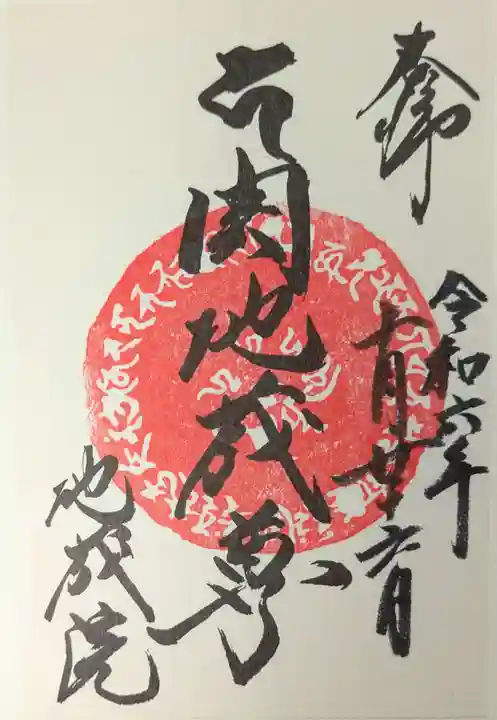 奉拝
令和六年
月廿六日
関地蔵尊
地蔵院